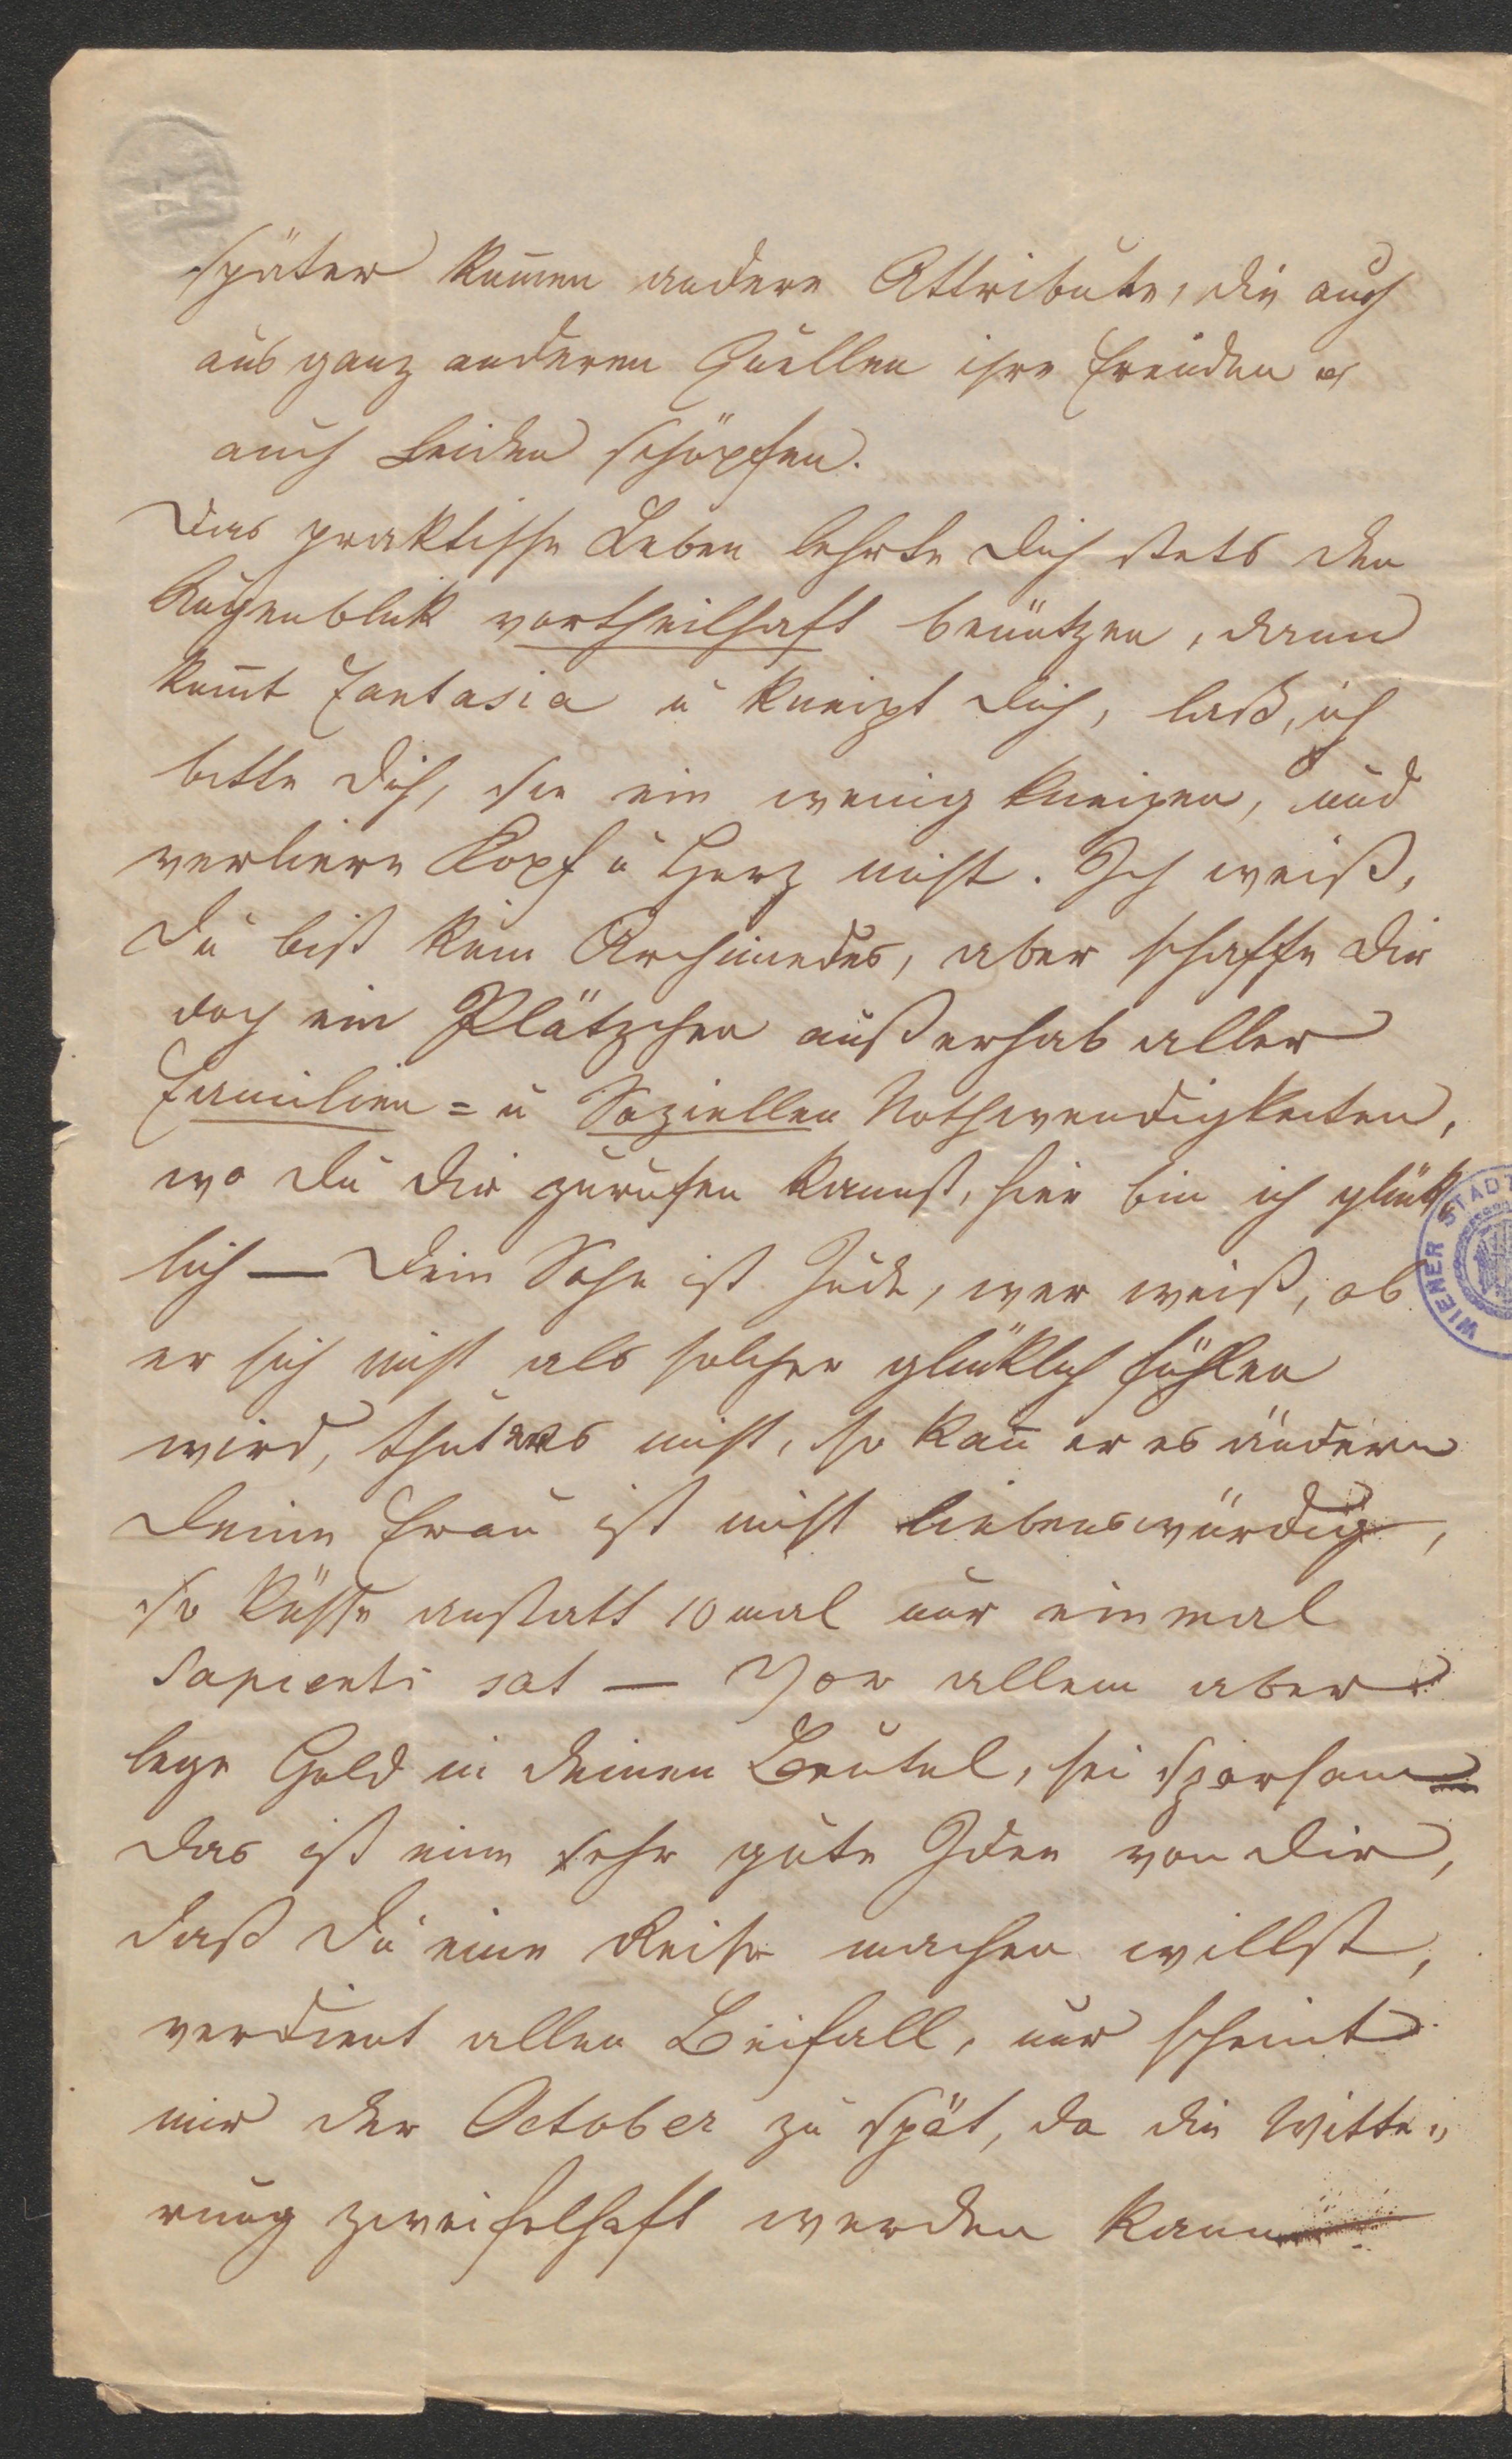 später kom̄en andere Attribute, die auch
aus ganz anderen Quellen ihre Freuden
auch Leiden schöpfen.
Das praktische Leben lehrte Dich stets den
Augenblik <u>vortheilhaft</u> benützen, dann
kom̄t Fantasia u kneipt Dich, laß, ich
bitte Dich, sie ein wenig kneipen, und
verliere Kopf u Herz nicht. Ich weiß,
Du bist kein Archimedes, aber schaffe Dir
doch ein Plätzchen außerhab aller
<u>Familien</u>= u <u>Soziellen</u> Nothwendigkeiten,
wo Du Dir zurufen kannst, hier bin ich glük
lich — Dein Sohn ist Jude, wer weiß, ob
er sich nicht als solcher glüklich fühlen
wird, thut ers nicht, so kan̄ er es ändern
Deine Frau ist nicht liebenswürdig,
so küsse anstatt 10 mal nur einmal
sapienti sat — Vor allem aber
lege Geld in deinen Beutel, sei sparsam
Das ist eine sehr gute Idee von Dir,
daß Du eine Reise machen willst,
verdient allen Beifall, nur scheint
mir der October zu spät, da die Witte„
rung zweifelhaft werden kann
WIENER STADT